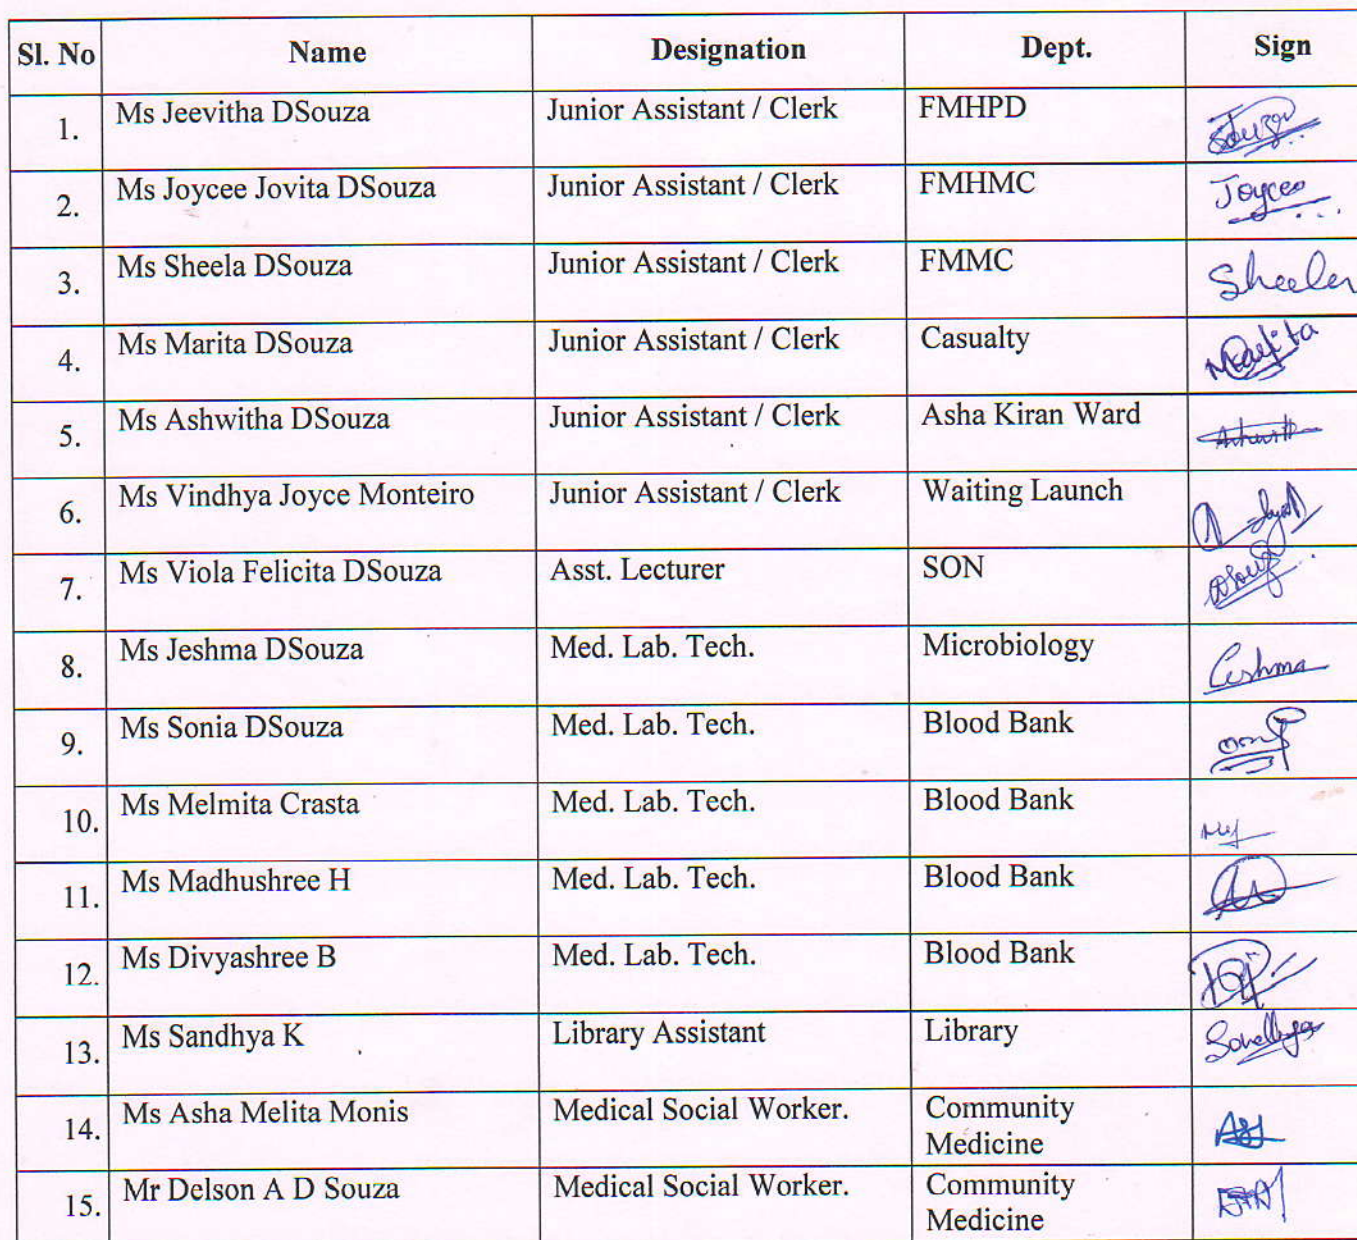 Sl. No Name Designation Dept. Sign
1. Ms Jeevitha DSouza Junior Assistant / Clerk FMHPD
2. Ms Joycee Jovita DSouza Junior Assistant / Clerk FMHMC Joycee
3. Ms Sheela DSouza Junior Assistant / Clerk FMMC Sheela
4. Ms Marita DSouza Junior Assistant / Clerk Casualty Marita
5. Ms Ashwitha DSouza Junior Assistant / Clerk Asha Kiran Ward
6. Ms Vindhya Joyce Monteiro Junior Assistant / Clerk Waiting Launch
7. Ms Viola Felicita DSouza Asst. Lecturer SON
8. Ms Jeshma DSouza Med. Lab. Tech. Microbiology
9. Ms Sonia DSouza Med. Lab. Tech. Blood Bank
10. Ms Melmita Crasta Med. Lab. Tech. Blood Bank
11. Ms Madhushree H Med. Lab. Tech. Blood Bank
12. Ms Divyashree B Med. Lab. Tech. Blood Bank
13. Ms Sandhya K Library Assistant Library Sandhya
14. Ms Asha Melita Monis Medical Social Worker. Community
Medicine
15. Mr Delson A D Souza Medical Social Worker. Community
Medicine